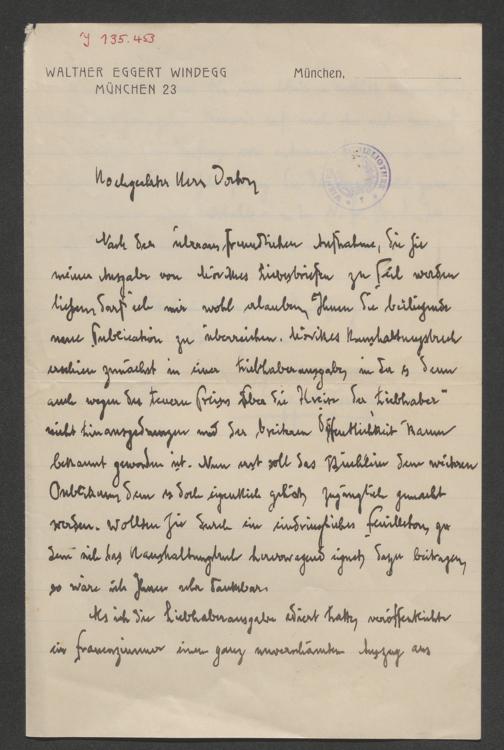 J 135.453
WALTHER EGGERT WINDEGG
MÜNCHEN 23
München,
Hochgeehrter Herr Doktor,
Nach der überaus freundlichen Aufnahme, die Sie
meiner Ausgabe von Mörikes Liebesbriefen zu Teil werden
liessen, darf ich mir wohl erlauben, Ihnen die beiliegende
neue Publication zu überreichen. Mörikes Haushaltungsbuch
erschien zunächst in einer Liebhaberausgabe, in der es denn
auch wegen des teuern Preises über die Kreise der "Liebhaber"
nicht hinausgedrungen und der breiteren Öffentlichkeit kaum
bekannt geworden ist. Nun erst soll das Büchlein dem weiteren
Publikum, dem es doch eigentlich gehört, zugänglich gemacht
werden. Wollten Sie durch ein eindringliches Feuilleton, zu
dem sich das Haushaltungsbuch hervorragend eignet, dazu beitragen,
so wäre ich Ihnen sehr dankbar.
Als ich die Liebhaberausgabe ediert hatte, veröffentlichte
ein Frauenzimmer einen ganz unverschämten Auszug aus